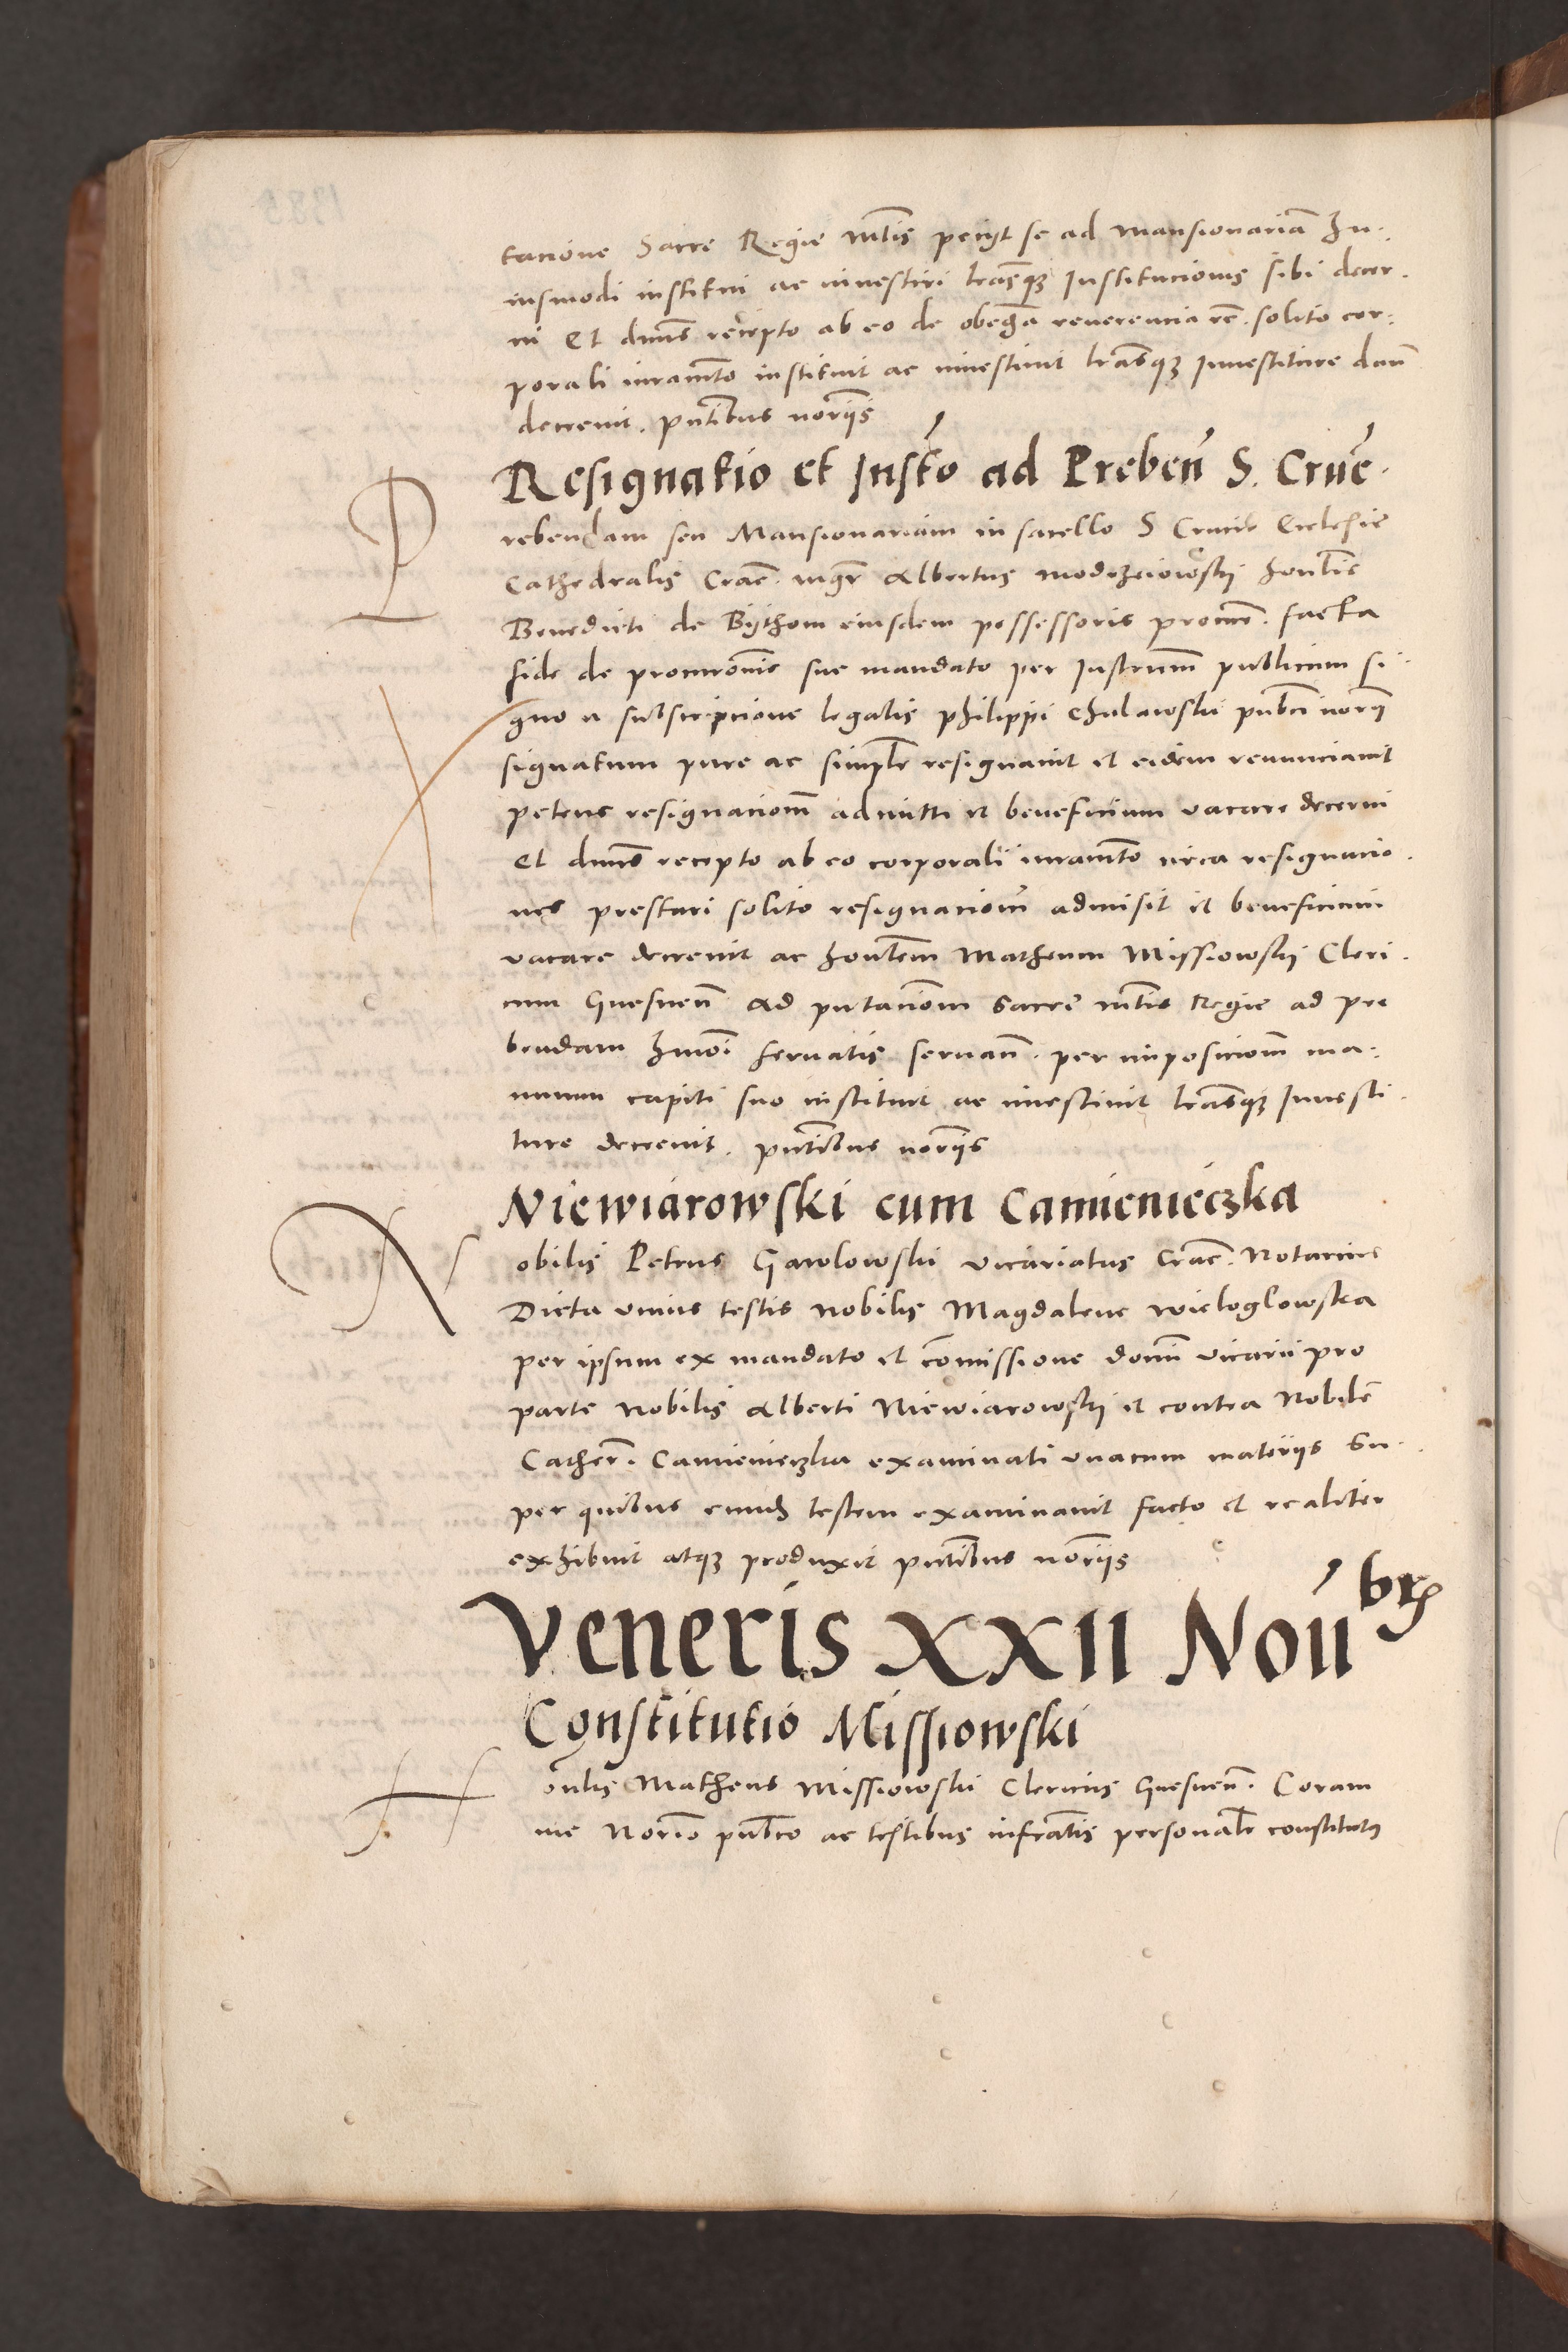 tacione Sacre Regie mtis pecijt se ad mansionariã hu-
iusmodi institui ac inuestiri lrasqȝ Institucionis sibi decer-
ni Et dnus recepto ab eo de obedia reuerencia rc. solito cor-
porali iuramto instituit ac inuestiuit lrasqȝ Inuestiture
decreuit. pntibus norijs
Resignatio et Insto ad Preben S. Cruc.
P
rebendam seu Mansionariam in sacello S Crucis Ecclesie
Cathedralis Crac. mgr Albertus modrzeiowskij honlis
Benedicti de Bijthom eiusdem possessoris procur. facta
fide de procuronis sue mandato per Instrum publicum si-
gno et subscripcione legalis philippi Chulawski publici norij
signatum pure ac simplr resignauit et eidem renunciauit
petens resignacionem admitti et beneficium vacare decerni
Et dnus recepto ab eo corporali iuramto circa resignacio-
nes prestari solito resignacionem admisit et beneficium
vacare decreuit ac honlem Matheum Missiowskij Cleri-
cum Gnesnen Ad pntacionem Sacre mtis Regie ad pre
bendam hmoi seruatis seruan. per imposicionem ma-
nuum capiti suo instituit ac inuestiuit lrasqȝ Inuesti-
ture decreuit. pntibus norijs
Niewiarowski cum Camienieczka
N
obilis Petrus Gawlowski vicariatus Crac. Notarius
Dicta vnius testis Nobilis Magdalene wieloglowska
per ipsum ex mandato et comissione domi vicarii pro
parte Nobilis Alberti Niewiarowskij et contra Nobilem
Cather. Camienieczka examinati vnacum materijs su-
per quibus eund testem examinauit facto et realiter
exhibuit atqȝ produxit pntibus norijs
Veneris XXII Noubrs
Constitutio Missiowski
H
onlis Matheus Missiowski Clericus Gnesnen. Coram
me Norio publico ac testibus infratis personalr constitutus